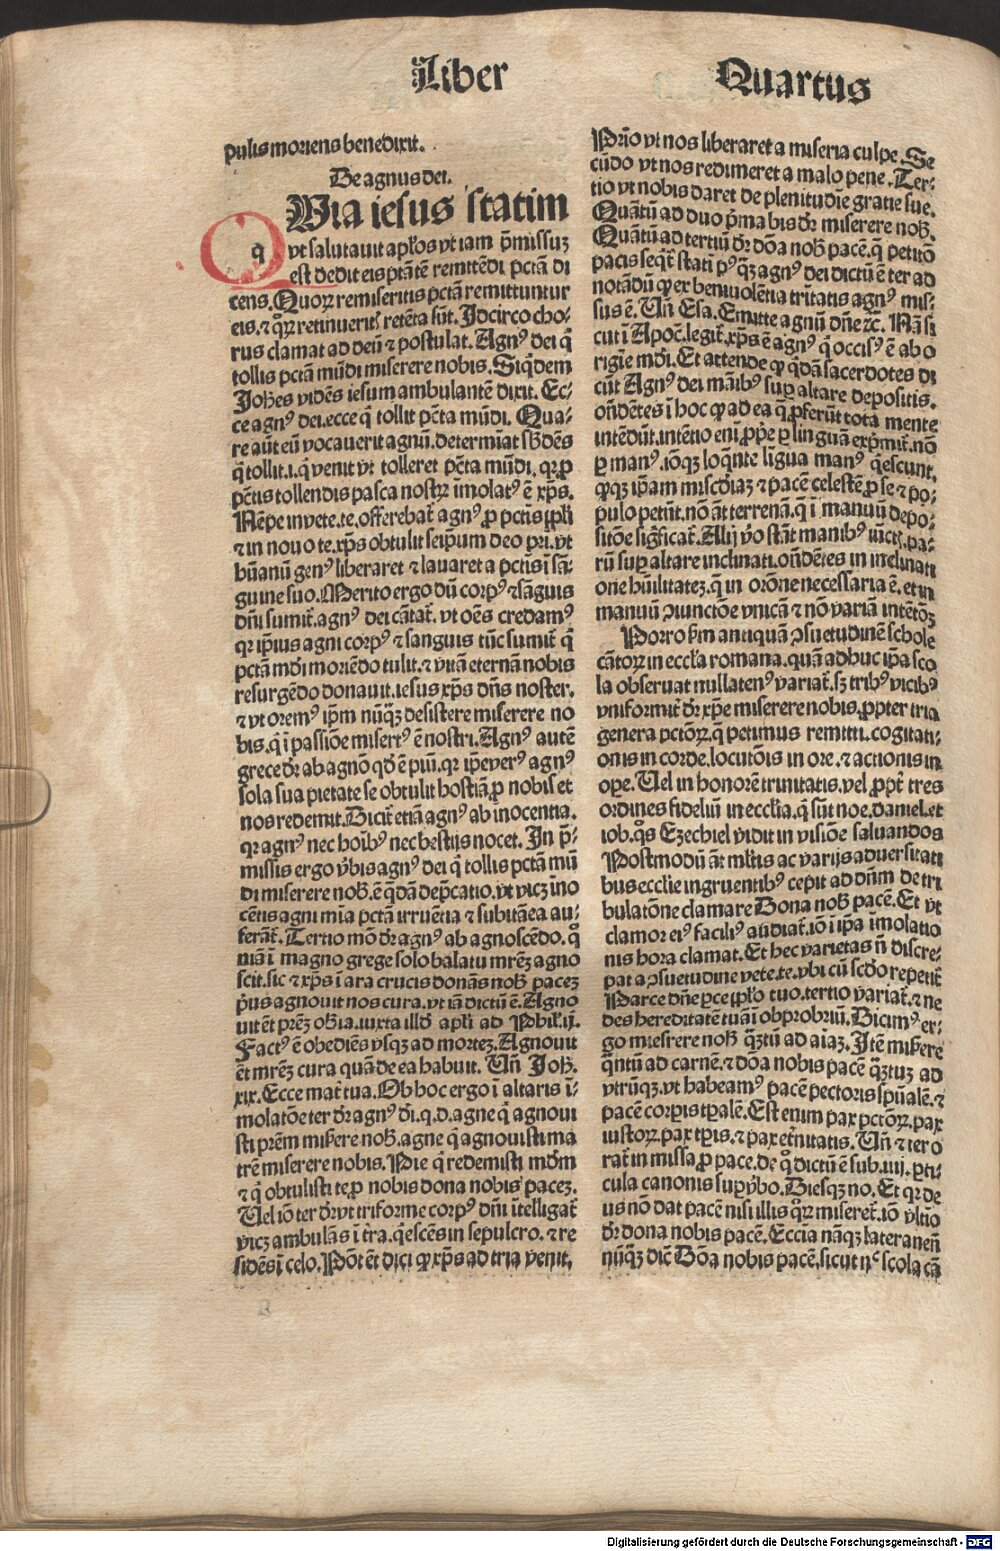 Liber Quartus
pulis moriens benedixit.
De agnus dei.
qVia iesus statim
vt salutauit apl̄os vt iam p̄missuꝫ
est dedit eis ptātē remittēdi pctā di
cens. Quoꝝ remiseritis pctā remittuntur
eis. ⁊ q̊ꝝ retinueritꝭ retēta sūt. Idcirco cho⸗
rus clamat ad deū ⁊ postulat. Agnꝰ dei q̄
tollis pctā mūdi miserere nobis. Siq̄dem
Joh̄es vidēs iesum ambulantē dixit. Ec⸗
ce agnꝰ dei. ecce q̄ tollit pct̄a mūdi. Qua⸗
re aūt eū vocauerit agnū. determīat sb̄dēs
q̄ tollit .i. q̄ venit vt tolleret pct̄a mūdi. qꝛ ꝓ
pct̄is tollendis pasca nostꝝ īmolatꝰ ē xp̄s.
Nēpe in vete. te. offerebat̄ agnꝰ ꝓ pctīs ppl̄i
⁊ in nouo te. xp̄s obtulit seip̄um deo pri. vt
hūanū genꝰ liberaret ⁊ lauaret a pctis ī sā⸗
guine suo. Merito ergo dū corpꝰ ⁊ sāguis
dn̄i sumit̄. agnꝰ dei cātat̄. vt oēs credamꝰ
qꝛ ip̄ius agni corpꝰ ⁊ sanguis tūc sumit̄ q̄
pctā mdi moriēdo tulit. ⁊ vitā eternā nobis
resurgēdo donauit. iesus xp̄s dn̄s noster.
⁊ vt oremꝰ ip̄m nūq̄ꝫ desistere miserere no
bis. q̄ ī passiōe misertꝰ ē nostri. Agnꝰ autē
grece dr̄ ab agnō qd̄ ē piū. qꝛ ip̄e verꝰ agnꝰ
sola sua pietate se obtulit hostiā ꝓ nobis et
nos redemit. Dicit̄ etiā agnꝰ ab inocentia.
qꝛ agnꝰ nec hoīb̄ꝰ nec bestijs nocet. In p̄⸗
missis ergo v̄bis agnꝰ dei q̄ tollis pctā mū
di miserere nob̄. ē q̄dā dep̄catio. vt vicꝫ īno
cētis agni mīa pctā irruētia ⁊ subitanea au⸗
ferāt̄. Tertio mō dr̄ agnꝰ ab agnoscēdo. q̊
niā ī magno grege solo balatu mrēꝫ agno
scit. sic ⁊ xp̄s ī ara crucis donās nob̄ paceꝫ
p̄us agnouit nos cura. vt iā dictū ē. Agno
uit ēt prēꝫ obīa. iuxta illd̄ apl̄i ad Phil. ij.
Factꝰ ē obediēs vsqꝫ ad morteꝫ. Agnouit
ēt mrēꝫ cura quā de ea habuit. Vn̄ Joh̄.
xix. Ecce mat̄ tua. Ob hoc ergo ī altaris ī⸗
molatōe ter dr̄ agnꝰ d̄i. q. d. agne q̄ agnoui
sti prēm miserere nob̄. agne q̄ agnouisti ma
trē miserere nobis. Pie q̄ redemisti mdm̄
⁊ q̄ obtulisti te ꝓ nobis dona nobis paceꝫ.
Uel iō ter dr̄ vt triforme corpꝰ dn̄i ītelligat̄
vicꝫ ambulās ī tr̄a. q̄escēs in sepulcro. ⁊ re
sidēs ī celo. Pōt ēt dici ꝙ xp̄s ad tria venit.
Prīo vt nos liberaret a miseria culpe. Se
cūdo vt nos redimeret a malo pene. Ter⸗
tio vt nobis daret de plenitudīe gratie sue.
Quātū ad duo p̄ma bis dr̄ miserere nob̄.
Quātū ad tertiū dr̄ dōa nob̄ pacē. q̄ petitō
pacis seq̄t̄ statī pꝰq̄ꝫ agnꝰ dei dictū ē ter ad
notādū ꝙ ex beniuolētia trītatis agnꝰ mis⸗
sus ē. Vn̄ Esa. Emitte agnū dn̄e ⁊c̄. Nā si
cut ī Apoc̄. legit̄. xp̄s ē agnꝰ q̄ occisꝰ ē ab o
rigīe mdi. Et attende ꝙ q̄dā sacerdotes di
cūt Agnꝰ dei māibꝰ suꝑ altare depositis.
on̄dētes ī hoc ꝙ ad ea q̄ ꝓferūt tota mente
intēdūt. intētio eni ꝓp̄e ꝑ linguā exp̄mit̄. nō
ꝑ manꝰ. iōqꝫ loq̄nte līgua manꝰ q̄escunt.
qꝙꝫ ip̄am miscdīaꝫ ⁊ pacē celestē ꝓ se ⁊ po⸗
pulo petūt. nō āt terrenā. q̄ ī manuū depo⸗
sitōe sigīficat̄. Alij v̄o stāt manibꝰ iūctꝭ. pa⸗
rū suꝑ altare inclinati. on̄dētes in inclinati
one hūilitateꝫ. q̄ in orōne necessaria ē. et in
manuū ꝯiunctōe vnicā ⁊ nō variā intētōꝫ
Porro fm̄ antiquā ꝯsuetudinē schole
cātoꝝ in eccl̄ia romana. quā adhuc ip̄a sco
la obseruat nullatenꝰ variat̄. sꝫ tribꝰ vicibꝰ
vniformit̄ dr̄ xp̄e miserere nobis. ꝓpter tria
genera pctōꝝ. q̄ petimus remitti. cogitati⸗
onis in corde. locutōis in ore. ⁊ actionis in
oꝑe. Uel in honorē trinitatis. vel ꝓpt̄ tres
ordines fideliū in eccl̄ia. q̄ sūt noe. daniel. et
iob. q̊s Ezechiel vidit in visiōe saluandos
Postmodū āt ml̄tis ac varijs aduersitati
bus ecclie ingruentibꝰ cepit ad dn̄m de tri
bulatōne clamare Dona nob̄ pacē. Et vt
clamor eiꝰ faciliꝰ audiat̄. iō ī ip̄a īmolatio
nis hora clamat. Et hec varietas n̄ discre⸗
pat a ꝯsuetudine vete. te. vbi cū scd̄o repetit̄
Parce dn̄e ꝑce ppl̄o tuo. tertio variat̄. ⁊ ne
des hereditatē tuā ī obprobriū. Dicimꝰ er⸗
go miserere nob̄ q̄ꝫtū ad aīaꝫ. Itē miserere
q̄ntū ad carnē. ⁊ dōa nobis pacē q̄ꝫtuꝫ ad
vtrūqꝫ. vt habeamꝰ pacē pectoris spūalē. ⁊
pacē corꝑis tꝑalē. Est enim pax pctōꝝ. pax
iustoꝝ. pax tꝑis. ⁊ pax et̄nitatis. Vn̄ ⁊ ter o
rat̄ in missa ꝓ pace. de q̊ dictū ē sub .iiij. ꝑti⸗
cula canonis suꝑ v̄bo. Diesqꝫ no. Et qꝛ de
us nō dat pacē nisi illis q̊ꝝ miseret̄. iō vltīo
dr̄ dona nobis pacē. Eccīa nāqꝫ lateranen̄
nūq̄ꝫ dic̄ Dōa nobis pacē. sicut n̄ͨ scola cā
Digitalisierung gefördert durch die Deutsche Forschungsgemeinschaft - DFG